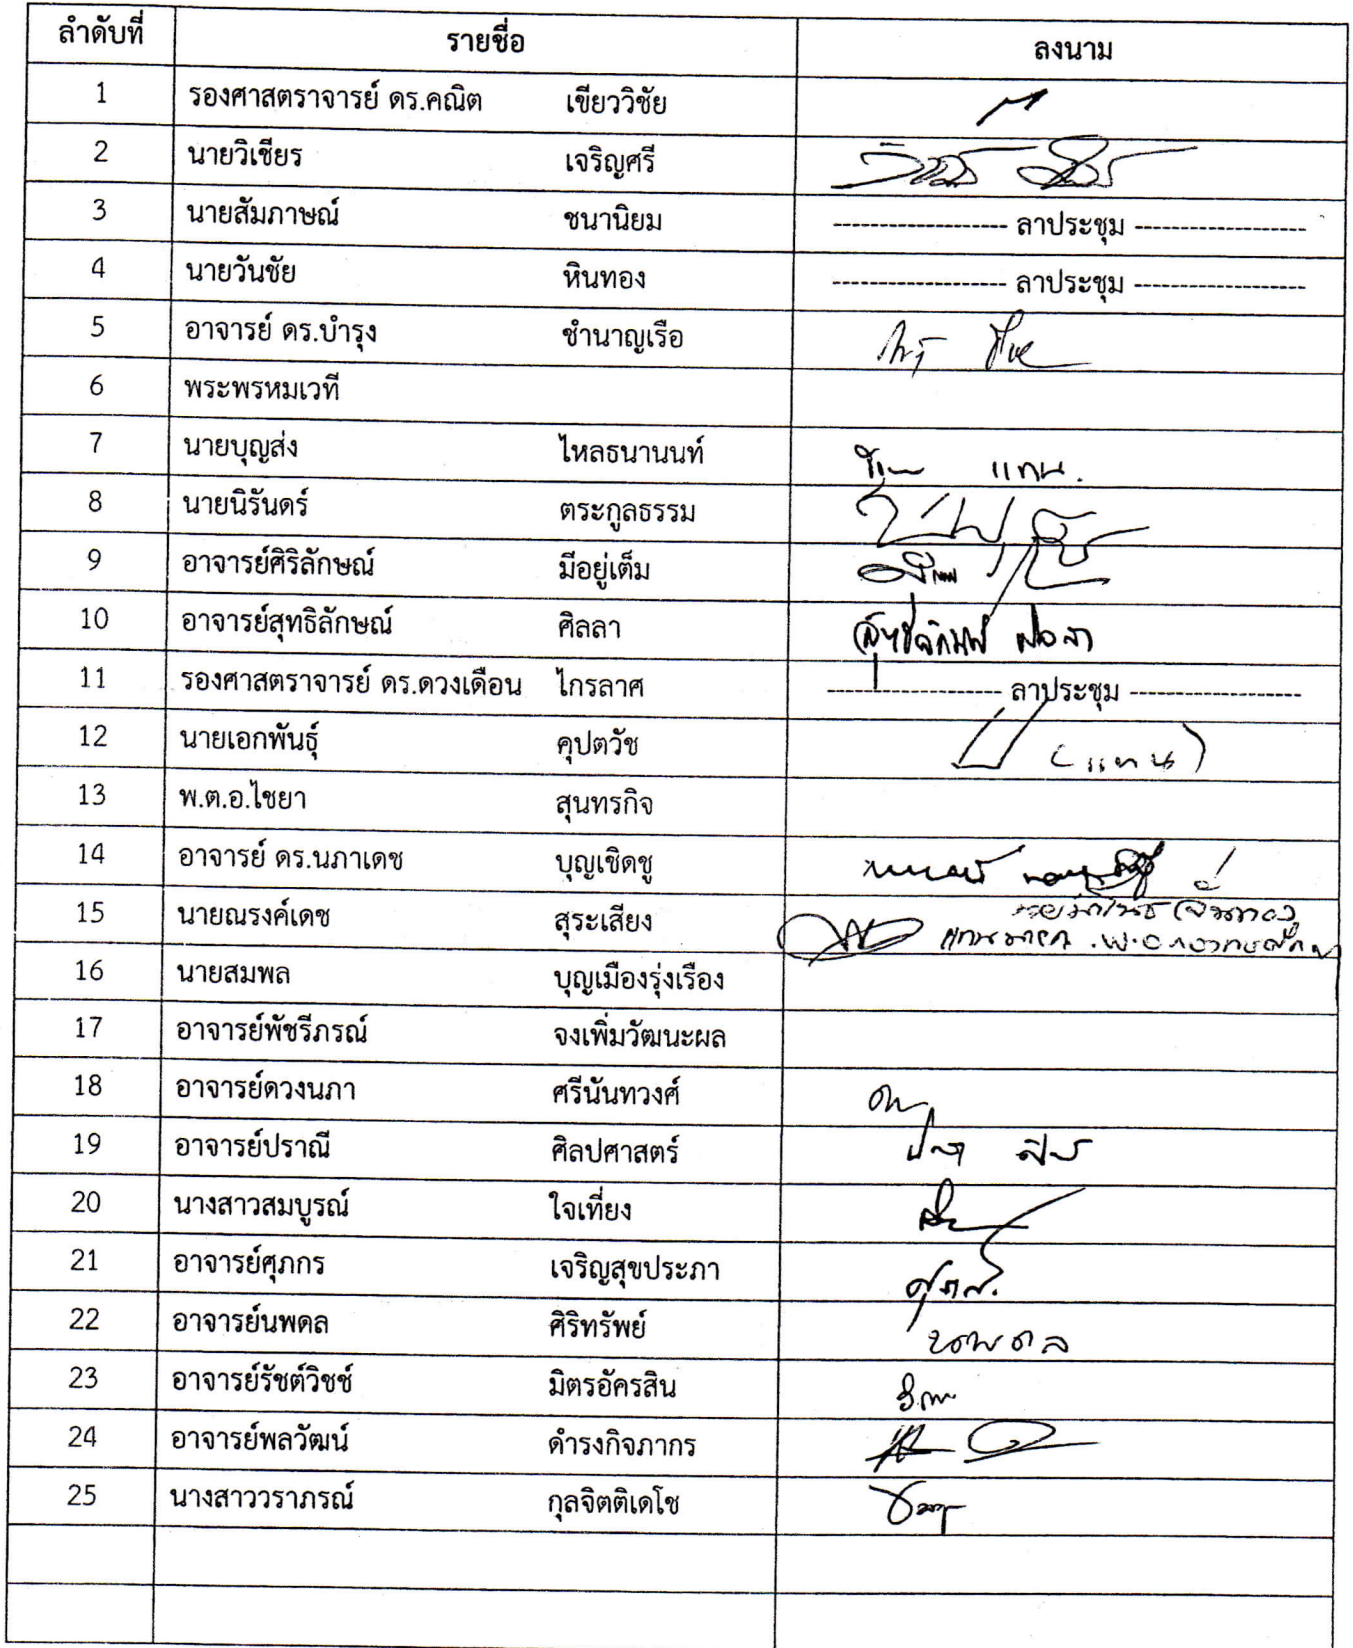 ลำดับที่ รายชื่อ ลงนาม
1 รองศาสตราจารย์ ดร.คณิต เขียววิชัย
2 นายวิเชียร เจริญศรี
3 นายสัมภาษณ์ ชนานิยม ------------------- ลาประชุม -------------------
4 นายวันชัย หินทอง ------------------- ลาประชุม -------------------
5 อาจารย์ ดร.บำรุง ชำนาญเรือ
6 พระพรหมเวที
7 นายบุญส่ง ไหลธนานนท์ แทน.
8 นายนิรันดร์ ตระกูลธรรม
9 อาจารย์ศิริลักษณ์ มีอยู่เต็ม
10 อาจารย์สุทธิลักษณ์ ศิลลา
11 รองศาสตราจารย์ ดร.ดวงเดือน ไกรลาศ ------------------- ลาประชุม -------------------
12 นายเอกพันธุ์ คุปตวัช (แทน)
13 พ.ต.อ.ไชยา สุนทรกิจ
14 อาจารย์ ดร.นภาเดช บุญเชิดชู
15 นายณรงค์เดช สุระเสียง
16 นายสมพล บุญเมืองรุ่งเรือง
17 อาจารย์พัชรีภรณ์ จงเพิ่มวัฒนะผล
18 อาจารย์ดวงนภา ศรีนันทวงศ์
19 อาจารย์ปราณี ศิลปศาสตร์
20 นางสาวสมบูรณ์ ใจเที่ยง
21 อาจารย์ศุภกร เจริญสุขประภา
22 อาจารย์นพดล ศิริทรัพย์ นพดล
23 อาจารย์รัชต์วิชช์ มิตรอัครสิน
24 อาจารย์พลวัฒน์ ดำรงกิจภากร
25 นางสาววราภรณ์ กุลจิตติเดโช